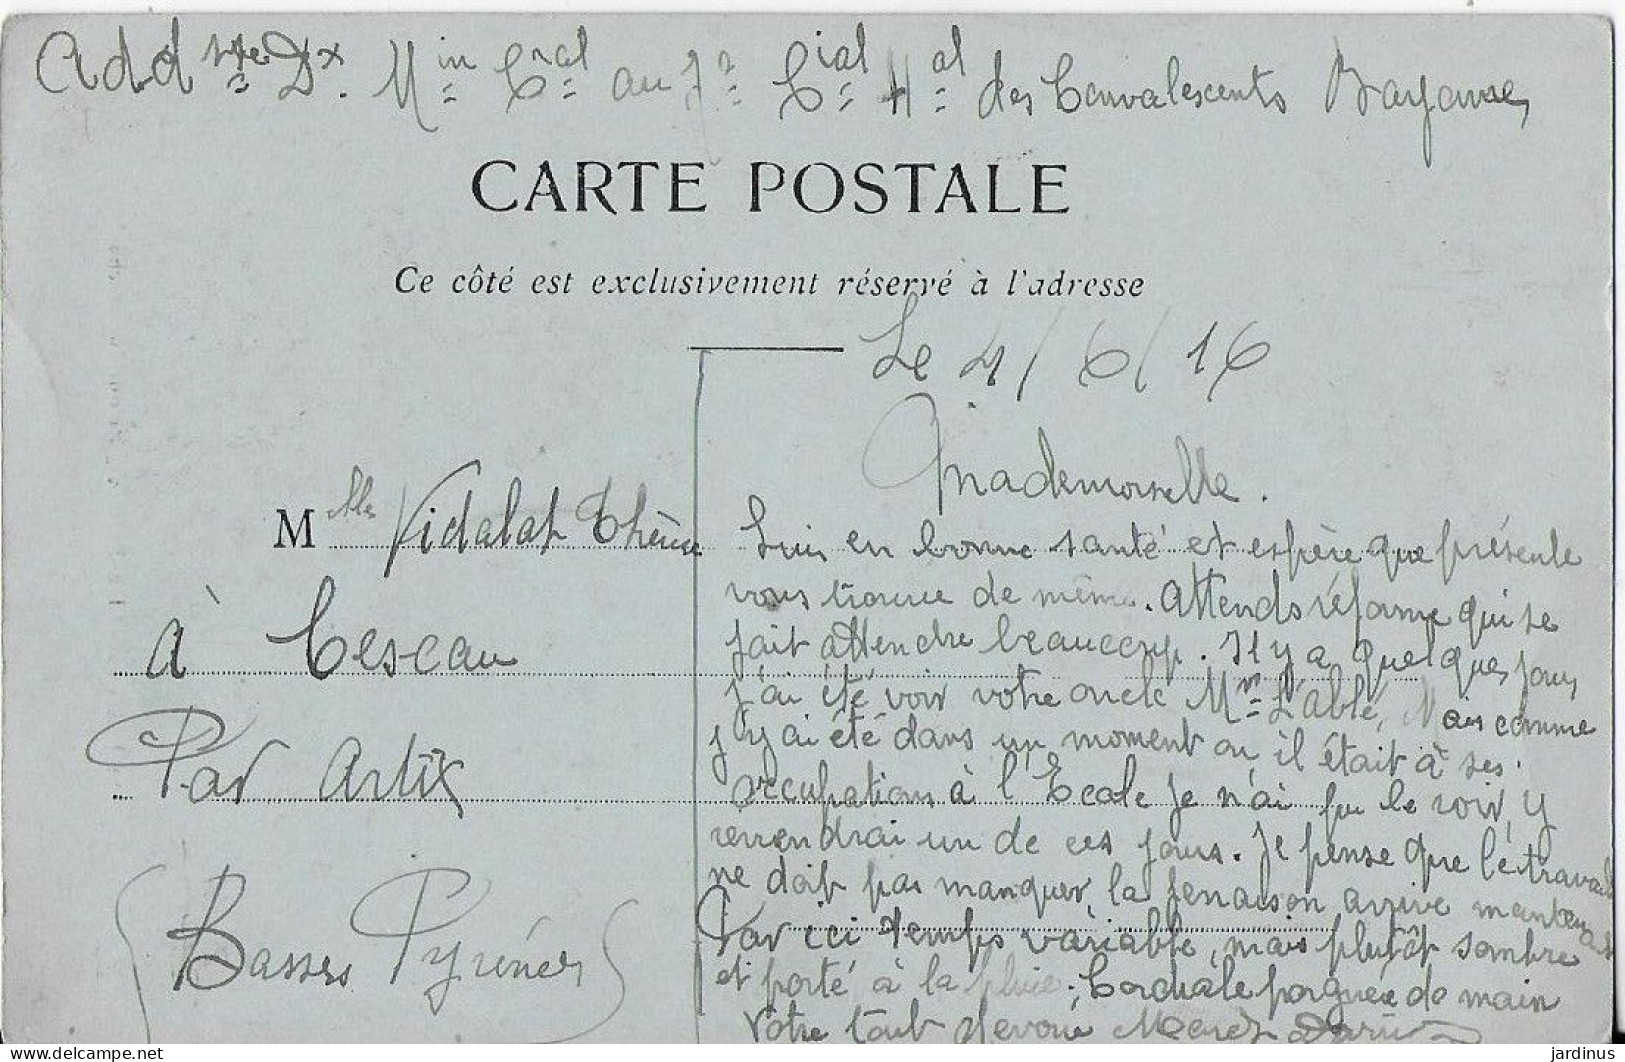 Add Dx. Min Cral au Cial Hal des Convalescents Bayonne
CARTE POSTALE
Ce côté est exclusivement réservé à l'adresse
Le 4/6/16
Mademoiselle.
Mlle Vidalat Thérèse
à Cescau
Par Artix
(Basses Pyrénées)
Suis en bonne santé et espère que présente
vous trouve de même. Attends réforme qui se
fait attendre beaucoup. Il y a quelques jours
j'ai été voir votre oncle Mr L'abbé, Mais comme
j'y ai été dans un moment ou il était à ses
occupations à l'Ecole je n'ai pu le voir, y
reviendrai un de ces jours. Je pense que le travail
ne doit pas manquer, la fenaison arrive maintenant
Par ici temps variable, mais plutôt sombre
et porté à la pluie. Cordiale poignée de main
Votre tout dévoué
jardinus
delcampe.net